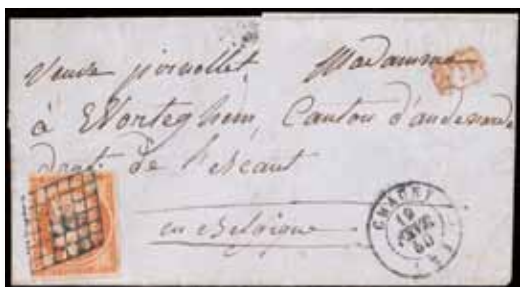 Madamme
Veuve pirnollet
à Worteghem, Canton d'audenarde
dept de l'escaut
en Belgique
CHAUNY
19
FEVR
50